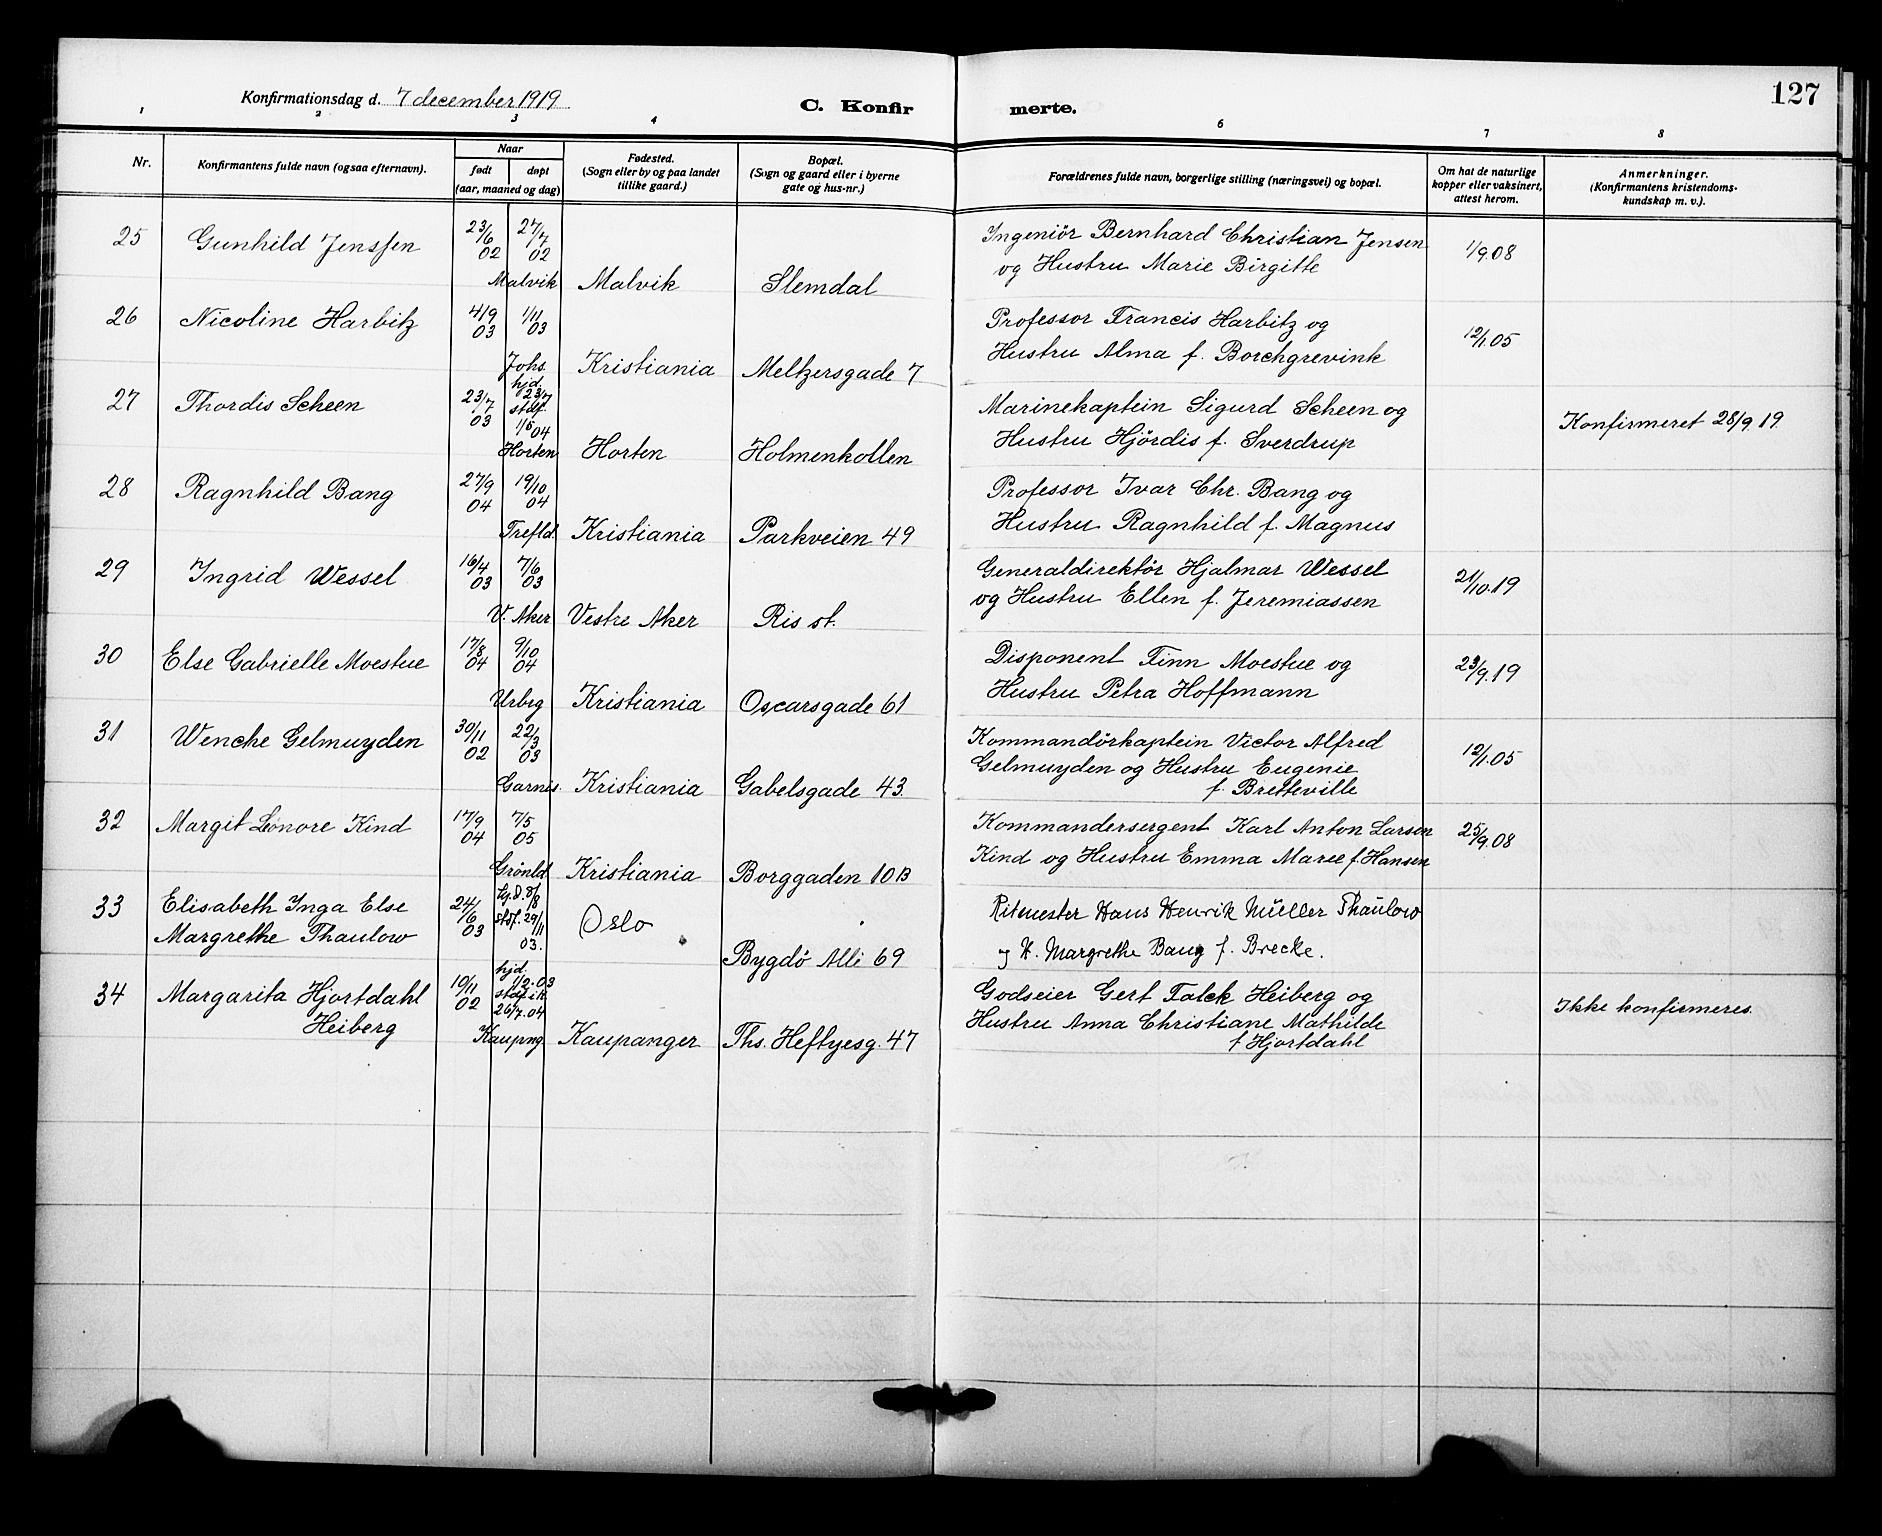 127
Konfirmationsdag d. 7 december 1919
C. Konfir merte.
1 2 3 4 6 7 8
Nr.
Konfirmantens fulde navn (ogsaa efternavn).
Naar
født døpt
(aar, maaned og dag)
Fødested.
(Sogn eller by og paa landet
tillike gaard.)
Bopæl.
(Sogn og gaard eller i byerne
gate og hus-nr.)
Forældrenes fulde navn, borgerlige stilling (næringsvei) og bopæl.
Om hat de naturlige
kopper eller vaksinert,
attest herom.
Anmerkninger.
(Konfirmantens kristendoms-
kundskap m. v.).
25 Gunhild Jenssen 23/6 02 27/7 02
Malvik Malvik Slemdal
Ingeniör Bernhard Christian Jensen
og Hustru Marie Birgitte
1/9.08
26 Nicoline Harbitz 4/9 03 1/11 03
Johs. Kristiania Meltzersgade 7
Professor Francis Harbitz og
Hustru Alma f. Borchgrevink
12/1.05
27 Thordis Scheen 23/7 03
hjd.
23/7
stdf.
1/5 04
Horten Horten Holmenkollen
Marinekaptein Sigurd Scheen og
Hustru Hjördis f. Sverdrup
Konfirmeret 28/9 19.
28 Ragnhild Bang 27/9 04 19/10 04
Trefld. Kristiania Parkveien 49
Professor Ivar Chr. Bang og
Hustru Ragnhild f. Magnus
29 Ingrid Wessel 16/4 03 7/6 03
V. Aker Vestre Aker Ris st.
Generaldirektör Hjalmar Wessel
og Hustru Ellen f. Jeremiassen
21/10.19
30 Else Gabrielle Moestue 17/8 04 9/10 04
Urbrg Kristiania Oscarsgade 61
Disponent Finn Moestue og
Hustru Petra Hoffmann
23/9.19
31 Wencke Gelmuyden 30/11 02 22/3 03
Garnis. Kristiania Gabelsgade 43.
Kommandörkaptein Victor Alfred
Gelmuyden og Hustru Eugenie
f. Bretteville
12/1.05
32 Margit Leonore Kind 17/9 04 7/5 05
Grönld Kristiania Borggaden 10B
Kommandersergent Karl Anton Larsen
Kind og Hustru Emma Marie f Hansen
25/9.08
33 Elisabeth Inga Else
Margrethe Thaulow
24/6 03
stsf. 29/11
03.
Oslo
Bygdö Alli 69
Ritmester Hans Henrik Müller Thaulow
og H. Margrethe Bang f. Brecke.
34 Margarita Hjortdahl
Heiberg
10/11 02
hjd.
1/2.03
stdf. i k.
26/7.04
Kaupng Kaupanger Ths. Heftyesg. 47
Godseier Gert Falck Heiberg og
Hustru Anna Christiane Mathilde
f Hjortdahl
Ikke konfirmeres.